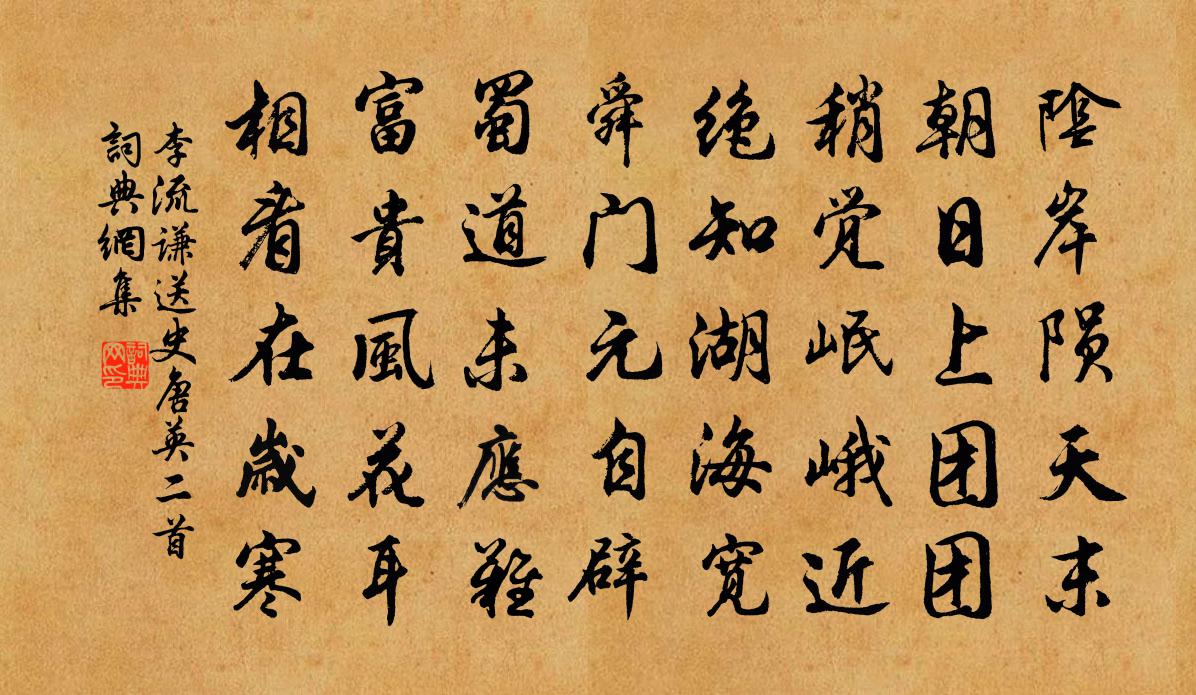 陰岸陨天末
朝日上团团
稍觉岷峨近
绝知湖海宽
舜门元自辟
蜀道未應難
富貴風花耳
相看在歲寒
李流谦送史唐英二首
詞典網集
詞典网印